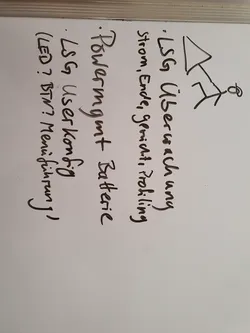 · LSG Überwachung
Strom, Ende, gewicht, Profiling
· Powermgmt Batterie
· LSG Userkonfig
(LED? BTN? Menüführung)